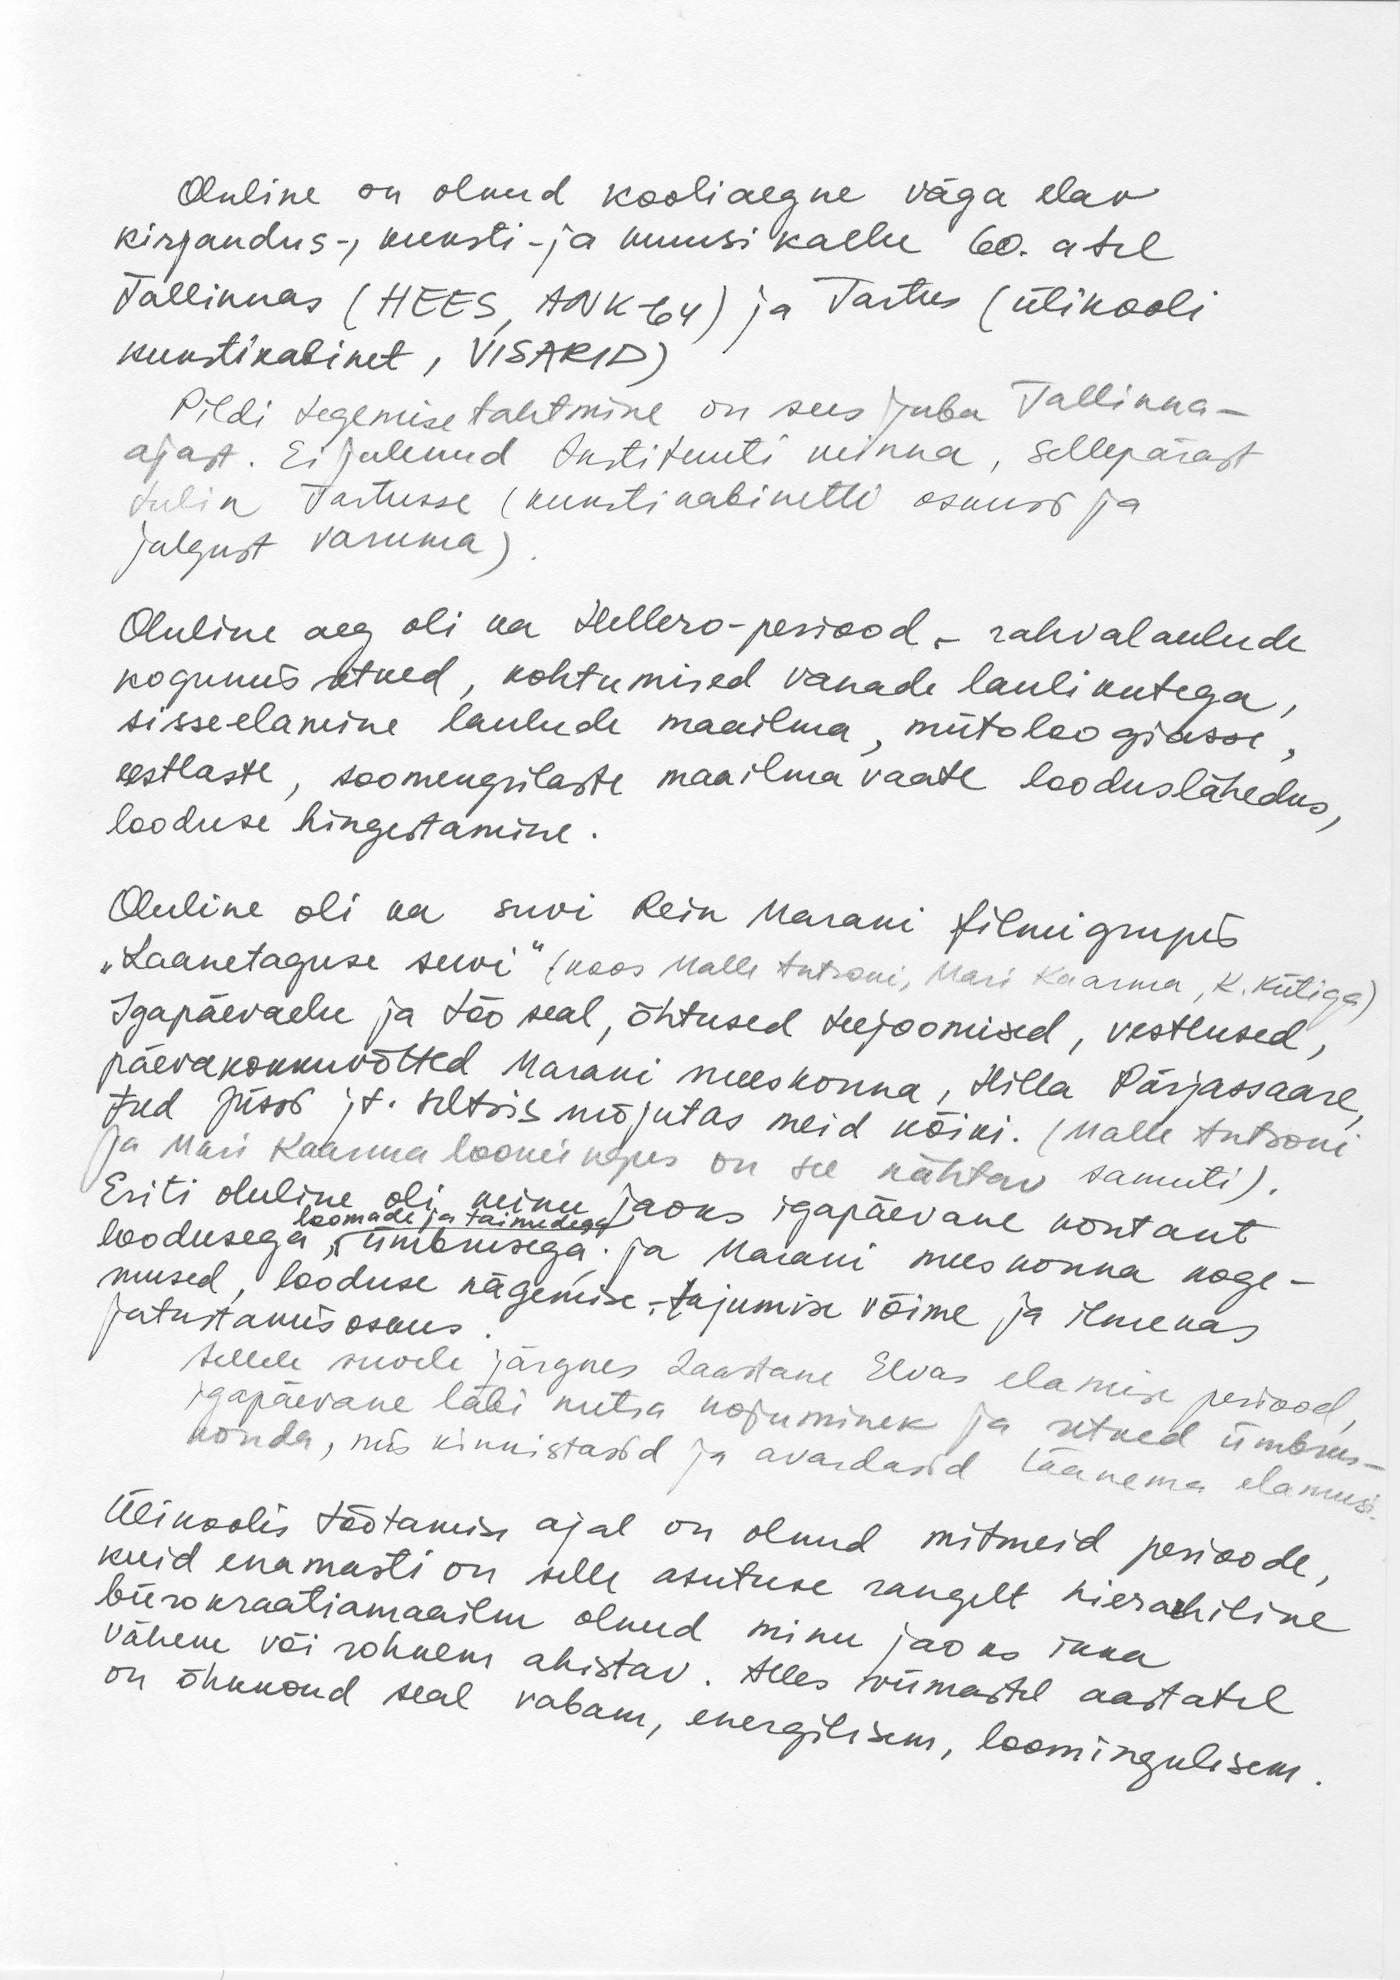 Oluline on olnud kooliaegne väga elav
kirjandus-, kunsti- ja muusikaelu 60. atel
Tallinnas (HEES, ANK-64) ja Tartus (ülikooli
kunstikabinet, VISARID)
Pildi tegemise tahtmine on sees juba Tallinna-
ajast. Ei julenud Instituuti minna, sellepärast
tulin Tartusse (kunstikabinetti oskusi ja
julgust varuma).
Oluline aeg oli ka Hellero-periood - rahvalaulude
kogumisretked, kohtumised vanade laulikutega,
sisseelamine laulude maailma, mütoloogiasse,
eestlaste, soomeugrilaste maailmavaate looduslähedus,
looduse hingestamine.
Oluline oli ka suvi Rein Marani filmigrupis
„Laanetaguse suvi" (koos Malle Antsoni, Mari Kaarma, K. Kütiga)
Igapäevaelu ja töö seal, õhtused teejoomised, vestlused,
päevakokkuvõtted Marani meeskonna, Hilla Pärjassaare,
Fred Jüssi jt. seltsis mõjutas meid kõiki. (Malle Antsoni
ja Mari Kaarma loomingus on see nähtav samuti).
Eriti oluline oli minu jaoks igapäevane kontakt
loomade ja taimedega
loodusega, ümbrusega. ja Marani meeskonna koge-
mused, looduse nägemise-, tajumise võime ja ilmekas
jutustamisoskus.
Sellele suvele järgnes aastane Elvas elamise periood,
igapäevane läbi metsa kojuminek ja retked ümbrus-
konda, mis kinnistasid ja avardasid Läänema elamusi.
Ülikoolis töötamise ajal on olnud mitmeid perioode,
kuid enamasti on selle asutuse rangelt hierarhiline
bürokraatiamaailm olnud minu jaoks ikka
vähem või rohkem ahistav. Alles viimastel aastatel
on õhkkond seal vabam, energilisem, loomingulisem.